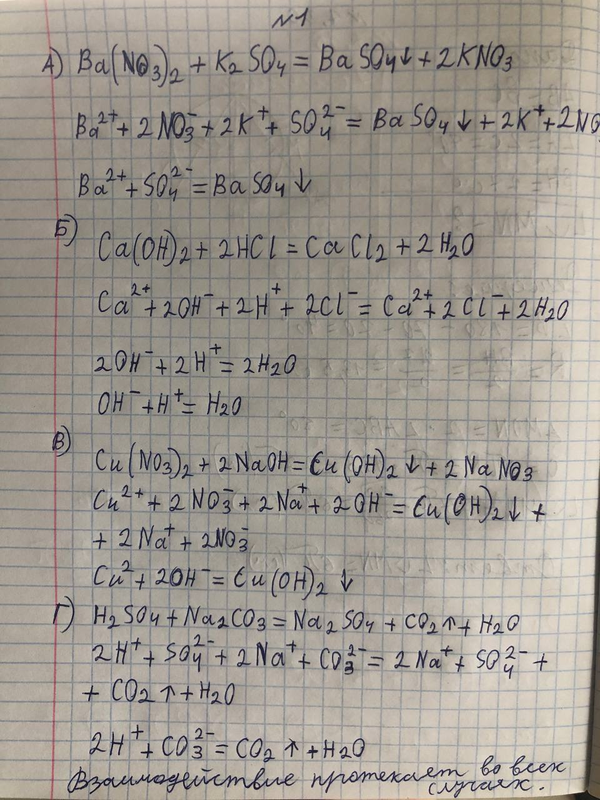 №1
А) Ba(NO₃)₂ + K₂SO₄ = BaSO₄↓ + 2KNO₃
Ba²⁺ + 2NO₃⁻ + 2K⁺ + SO₄²⁻ = BaSO₄↓ + 2K⁺ + 2NO₃
Ba²⁺ + SO₄²⁻ = BaSO₄↓
Б)
Ca(OH)₂ + 2HCl = CaCl₂ + 2H₂O
Ca²⁺ + 2OH⁻ + 2H⁺ + 2Cl⁻ = Ca²⁺ + 2Cl⁻ + 2H₂O
2OH⁻ + 2H⁺ = 2H₂O
OH⁻ + H⁺ = H₂O
В)
Cu(NO₃)₂ + 2NaOH = Cu(OH)₂↓ + 2NaNO₃
Cu²⁺ + 2NO₃⁻ + 2Na⁺ + 2OH⁻ = Cu(OH)₂↓ +
+ 2Na⁺ + 2NO₃⁻
Cu² + 2OH⁻ = Cu(OH)₂↓
Г) H₂SO₄ + Na₂CO₃ = Na₂SO₄ + CO₂↑ + H₂O
2H⁺ + SO₄²⁻ + 2Na⁺ + CO₃²⁻ = 2Na⁺ + SO₄²⁻ +
+ CO₂↑ + H₂O
2H⁺ + CO₃²⁻ = CO₂↑ + H₂O
Взаимодействие протекает во всех
случаях.